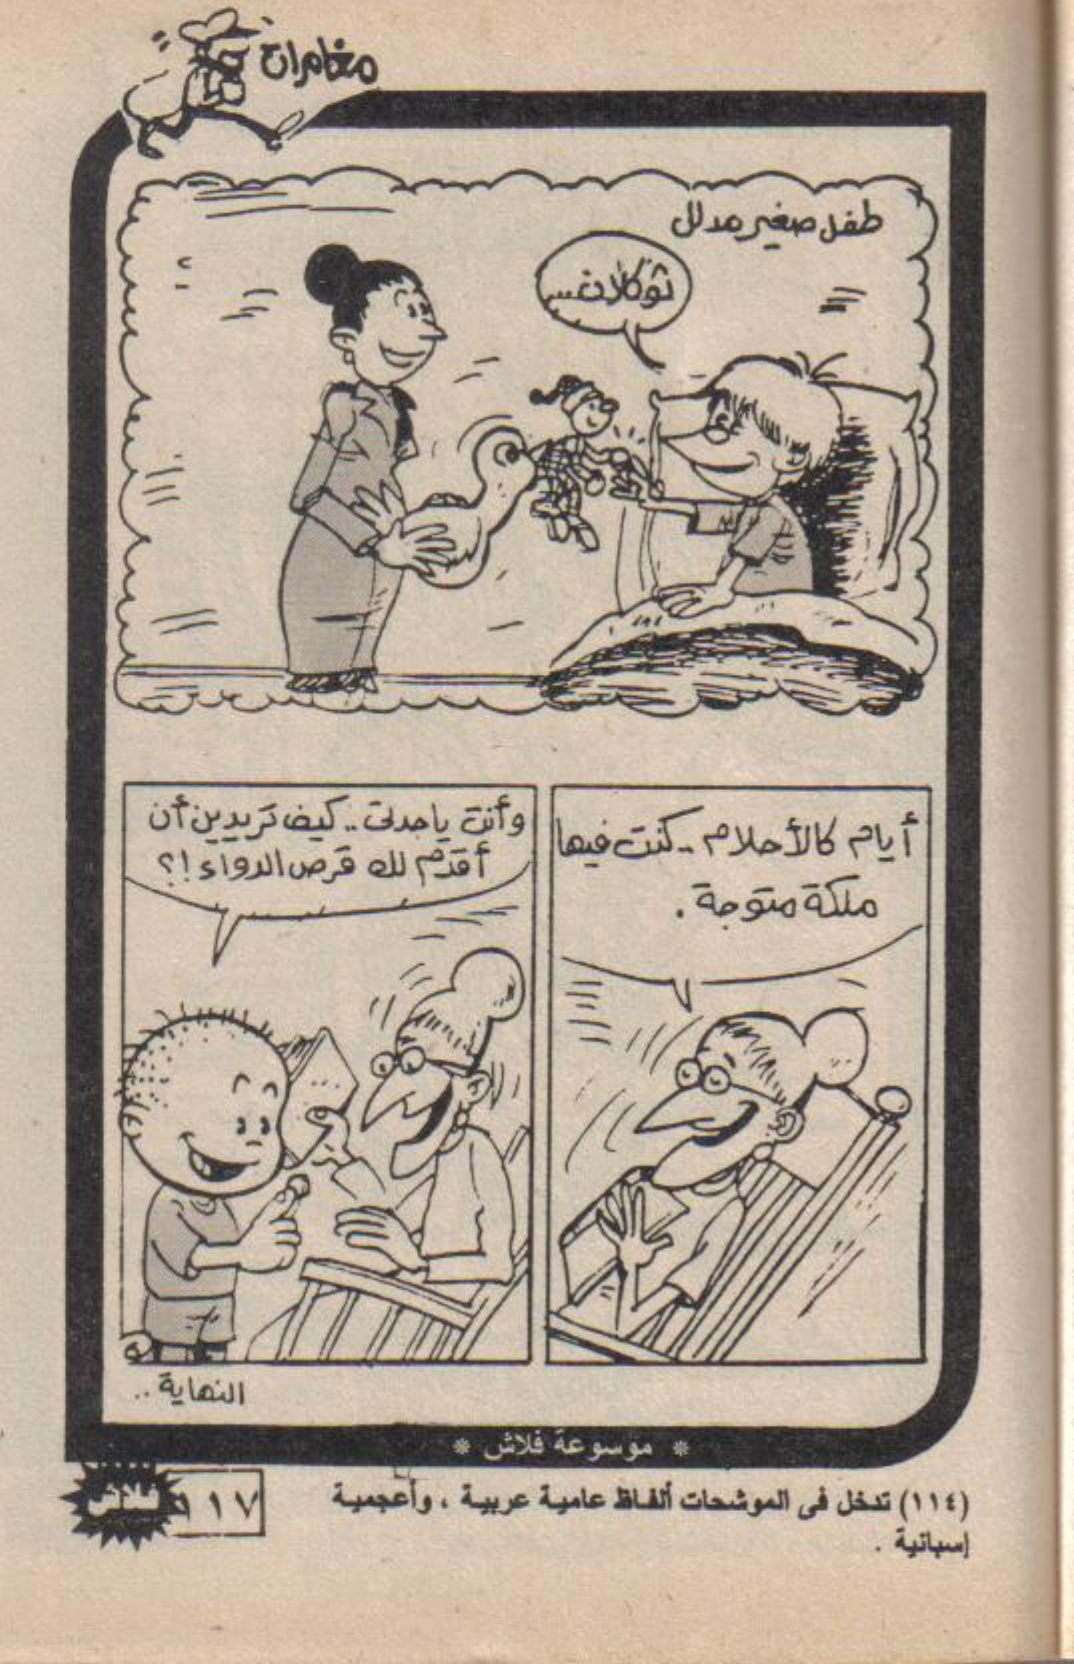 مغامرات
طفل صغير مدلل
ثوكلات...
أيام كالأحلام .. كنت فيها
ملكة متوجة .
وأنت يا جدتي .. كيف تريدين أن
أقدم لك قرص الدواء !؟
النهاية ..
* موسوعة فلاش *
(١١٤) تدخل فى الموشحات ألفاظ عامية عربية ، وأعجمية
إسبانية .
١١٧